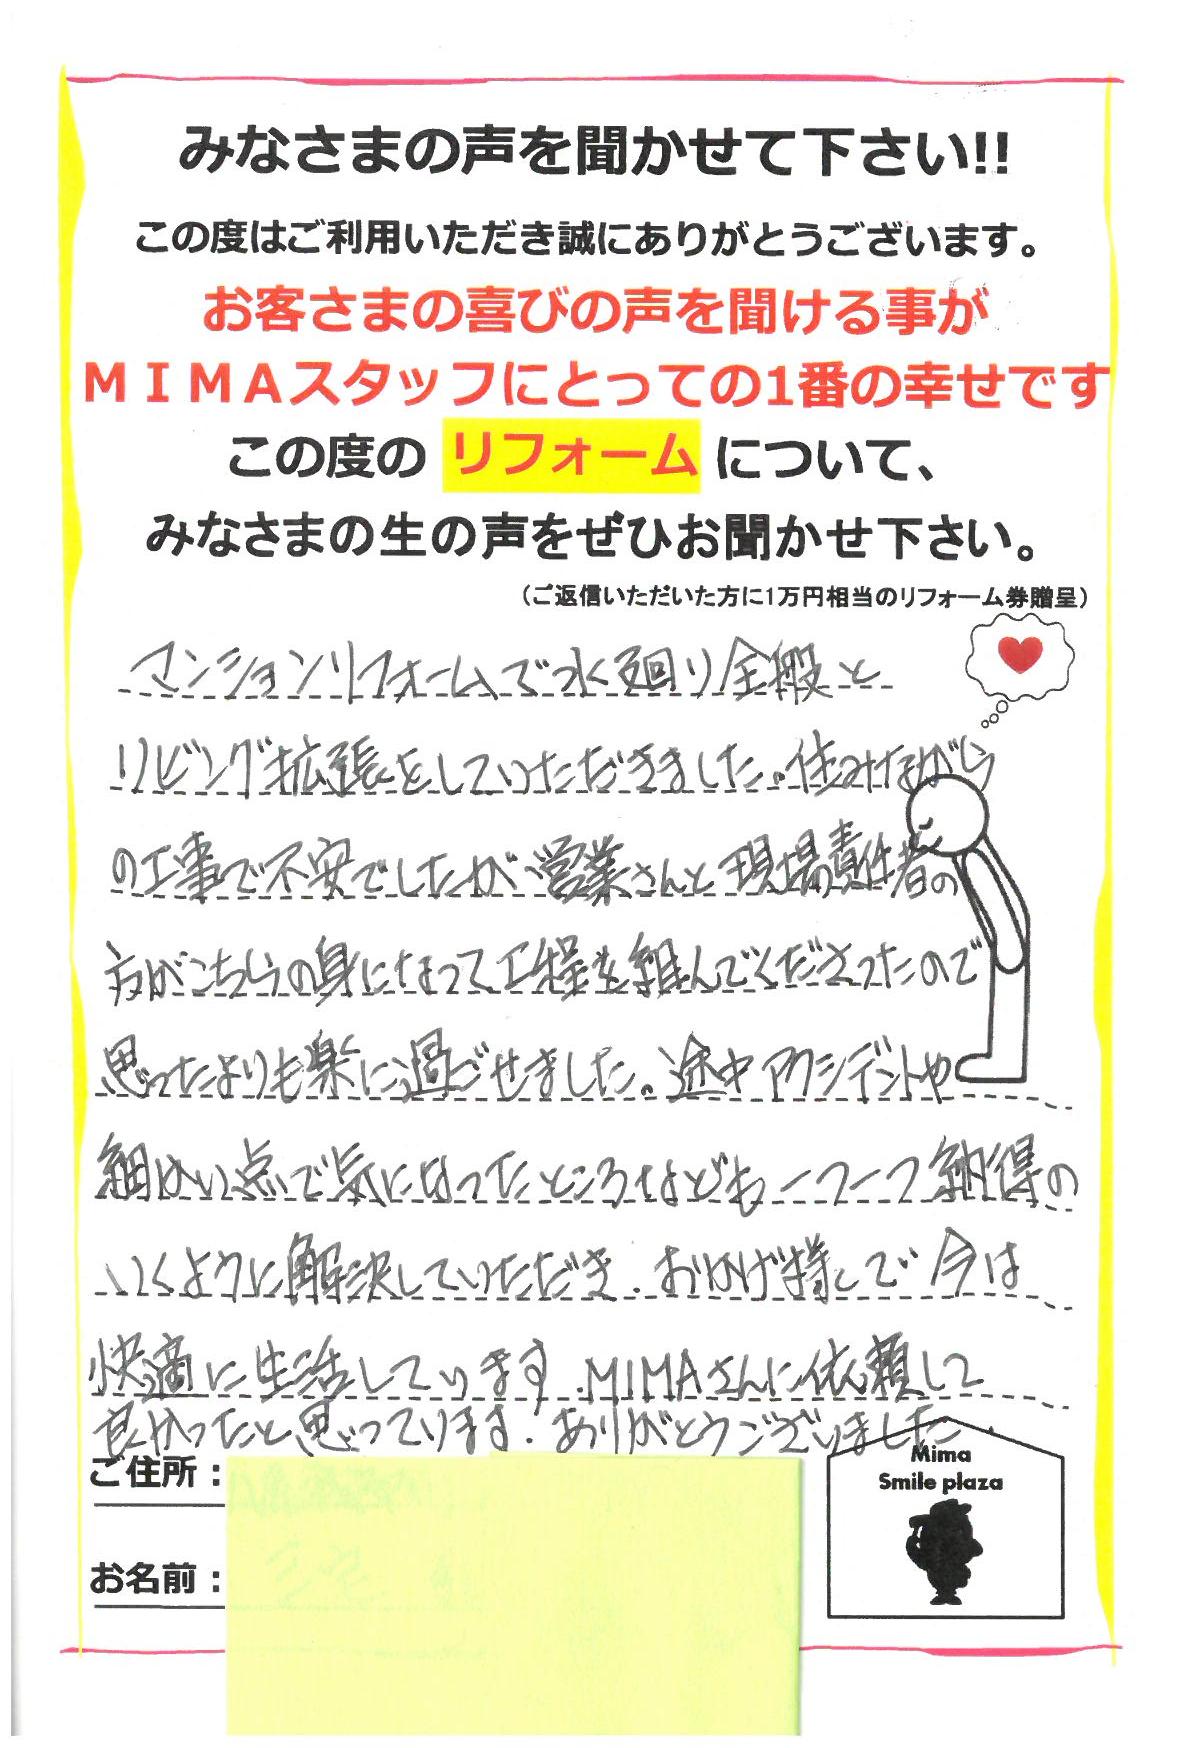 みなさまの声を聞かせて下さい!!
この度はご利用いただき誠にありがとうございます。
お客さまの喜びの声を聞ける事が
ＭＩＭＡスタッフにとっての1番の幸せです
この度の リフォーム について、
みなさまの生の声をぜひお聞かせ下さい。
（ご返信いただいた方に1万円相当のリフォーム券贈呈）
マンションリフォームで水廻り全般と
リビング拡張をしていただきました。住みながら
の工事で不安でしたが営業さんと現場責任者の
方がこちらの身になって工程を組んでくださったので
思ったよりも楽に過ごせました。途中アクシデントや
細かい点で気になったところなども一つ一つ納得の
いくように解決していただき、おかげ様で今は
快適に生活しています。MIMAさんに依頼して
良かったと思っています。ありがとうございました。
ご住所：
お名前：
Mima
Smile plaza